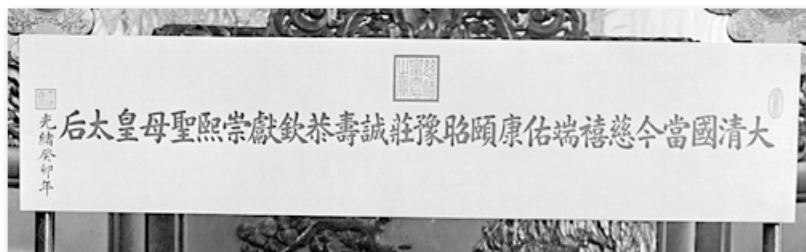 大清國當今慈禧端佑康頤昭豫莊誠壽恭欽獻崇熙聖母皇太后
光緒癸卯年